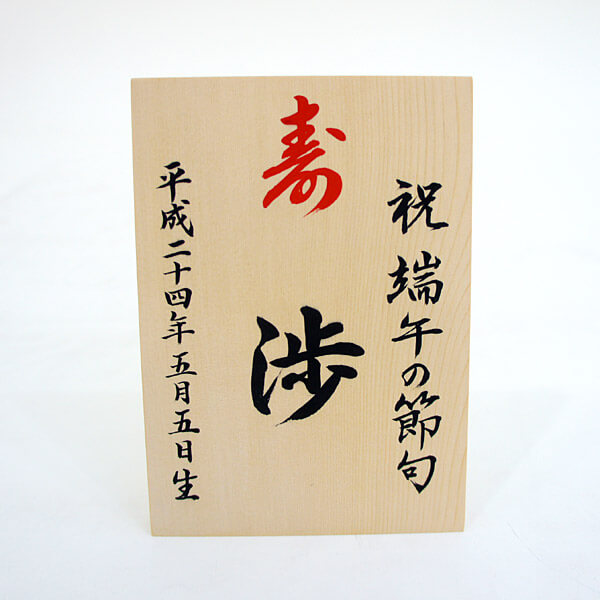 祝 端午の節句
寿
渉
平成二十四年五月五日生